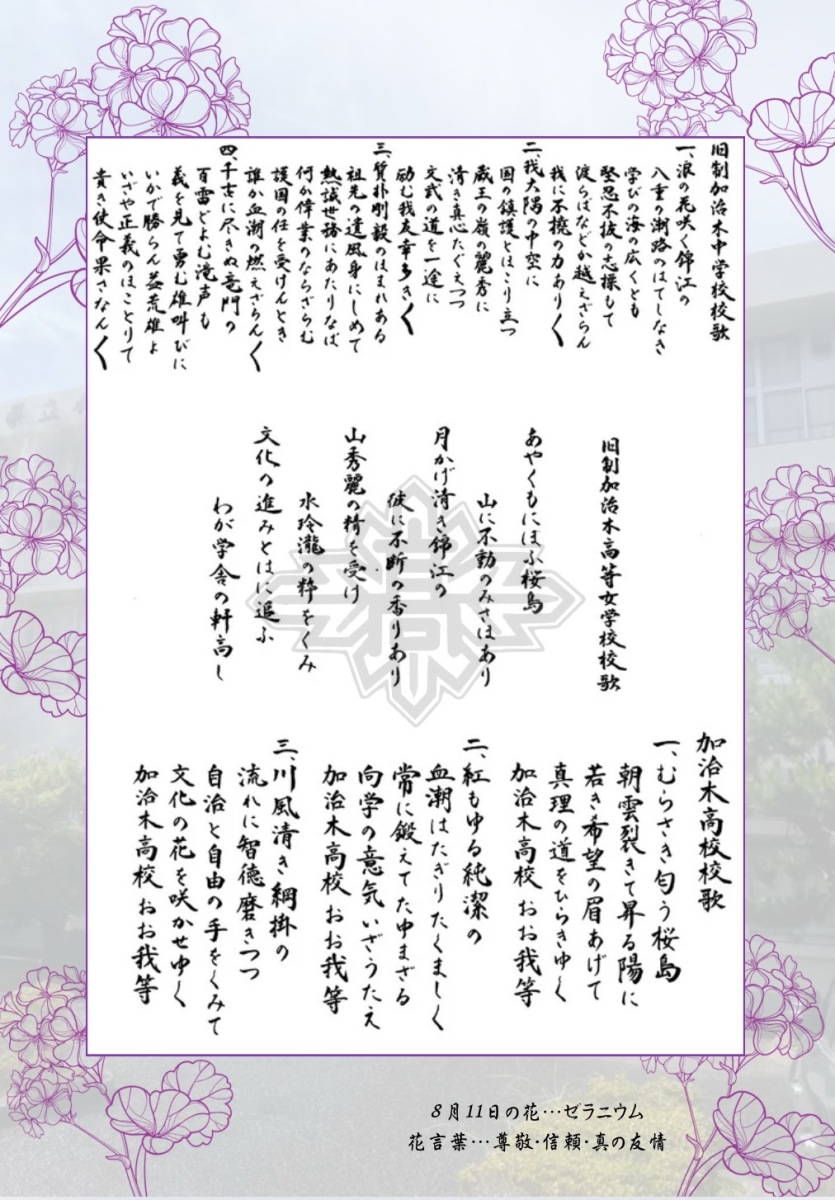 旧制加治木中学校校歌
一、浪の花咲く錦江の
八重の潮路のはてしなき
学びの海の広くとも
堅忍不抜の志操もて
渡らばなどか越えざらん
我に不撓の力あり〱
二、我大隅の中空に
国の鎮護とほこり立つ
蔵王の嶺の麗秀に
清き真心たぐえつつ
文武の道を一途に
励む我友幸多き〱
三、質朴剛毅のほまれある
祖先の遺風身にしめて
熱誠世務にあたりなば
何か偉業のならざらむ
護国の任を受けんとき
誰か血潮の燃えざらん〱
四、千古に尽きぬ竜門の
百雷どよむ滝声も
義を見て勇む雄叫びに
いかで勝らん益荒雄よ
いざや正義のほことりて
貴き使命果さなん〱
旧制加治木高等女学校校歌
あやぐもにほふ桜島
山に不動のみさほあり
月かげ清き錦江の
彼に不断の香りあり
山秀麗の精を受け
水玲瓏の粋をくみ
文化の進みとはに追ふ
わが学舎の軒高し
加治木高校校歌
一、むらさき匂う桜島
朝雲裂きて昇る陽に
若き希望の眉あげて
真理の道をひらきゆく
加治木高校 おお我等
二、紅もゆる純潔の
血潮はたぎりたくましく
常に鍛えてたゆまざる
向学の意気いざうたえ
加治木高校 おお我等
三、川風清き網掛の
流れに智徳磨きつつ
自治と自由の手をくみて
文化の花を咲かせゆく
加治木高校 おお我等
高
8月11日の花…ゼラニウム
花言葉…尊敬・信頼・真の友情